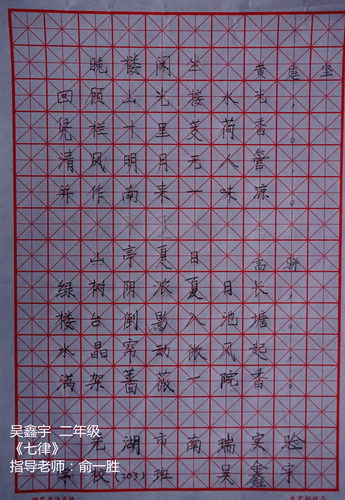 晚楼闲坐 黄庭坚
回顾山光接水光，
凭栏十里芰荷香。
清风明月无人管，
并作南来一味凉。
山亭夏日 高骈
绿树阴浓夏日长，
楼台倒影入池塘。
水晶帘动微风起，
满架蔷薇一院香。
芜湖市南瑞实验
学校(203)班 吴鑫宇
吴鑫宇 二年级
《七律》
指导老师：俞一胜